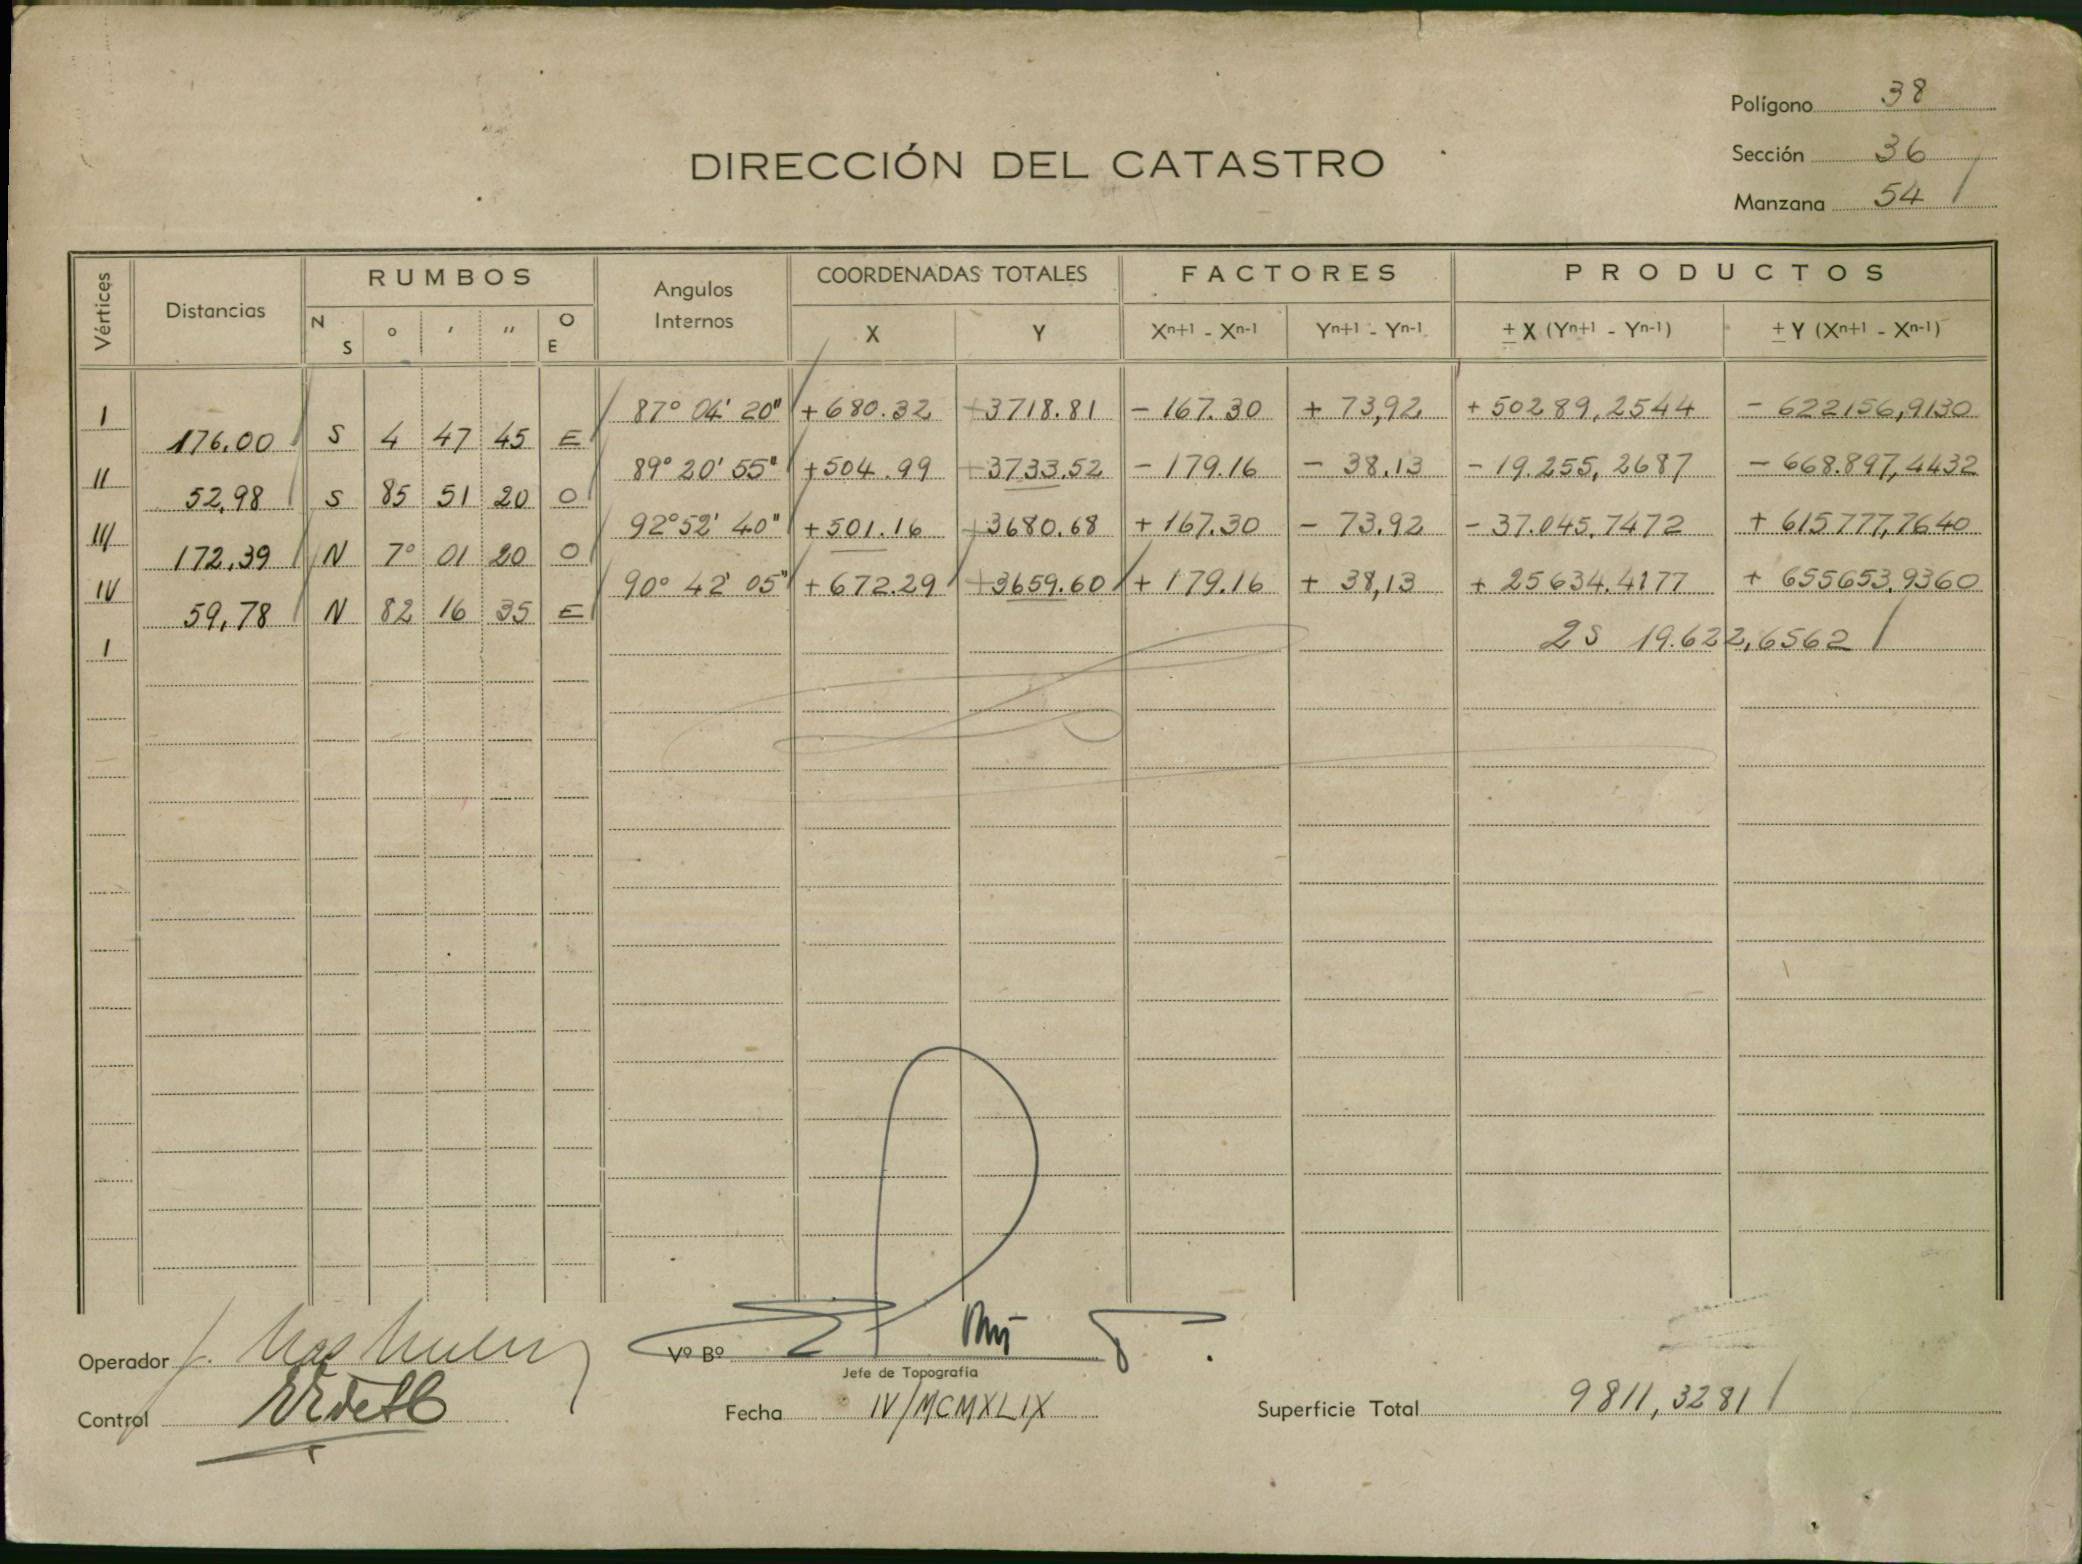 Polígono 38
Sección 36
Manzana 54
DIRECCIÓN DEL CATASTRO
Vértices Distancias RUMBOS Angulos Internos COORDENADAS TOTALES FACTORES PRODUCTOS
N S ° ' '' O E X Y Xn+1 - Xn-1 Yn+1 - Yn-1 ± X (Yn+1 - Yn-1) ± Y (Xn+1 - Xn-1)
I 87° 04' 20" +680.32 +3718.81 - 167.30 + 73,92 + 50289,2544 - 622156,9130
176.00 S 4 47 45 E
II 89° 20' 55" +504.99 +3733.52 - 179.16 - 38.13 - 19.255,2687 - 668.897,4432
52,98 S 85 51 20 O
III 92° 52' 40" +501.16 +3680.68 + 167.30 - 73.92 - 37.045,7472 + 615.777,7640
172,39 N 7° 01 20 O
IV 90° 42' 05" +672.29 +3659.60 + 179.16 + 38,13 + 25634.4177 + 655653,9360
59,78 N 82 16 35 E
I 2S 19.622,6562
Operador J.
Vº Bº
Jefe de Topografía
Control
Fecha IV/MCMXLIX
Superficie Total 9811,3281